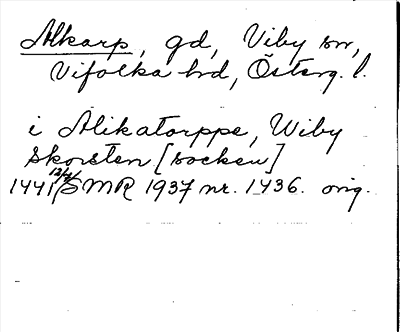 Alkarp, gd, Viby sn,
Vifolka hd, Österg. l.
i Alikatorppe, Wiby
skorsten [socken]
1441 12/4 SMR 1937 nr. 1436. orig.